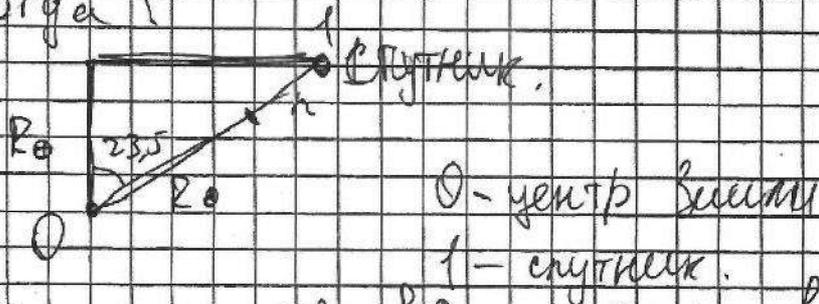 1
Спутник.
h
R⊕
23,5
R⊕
O
O - центр Земли
1 - спутник.